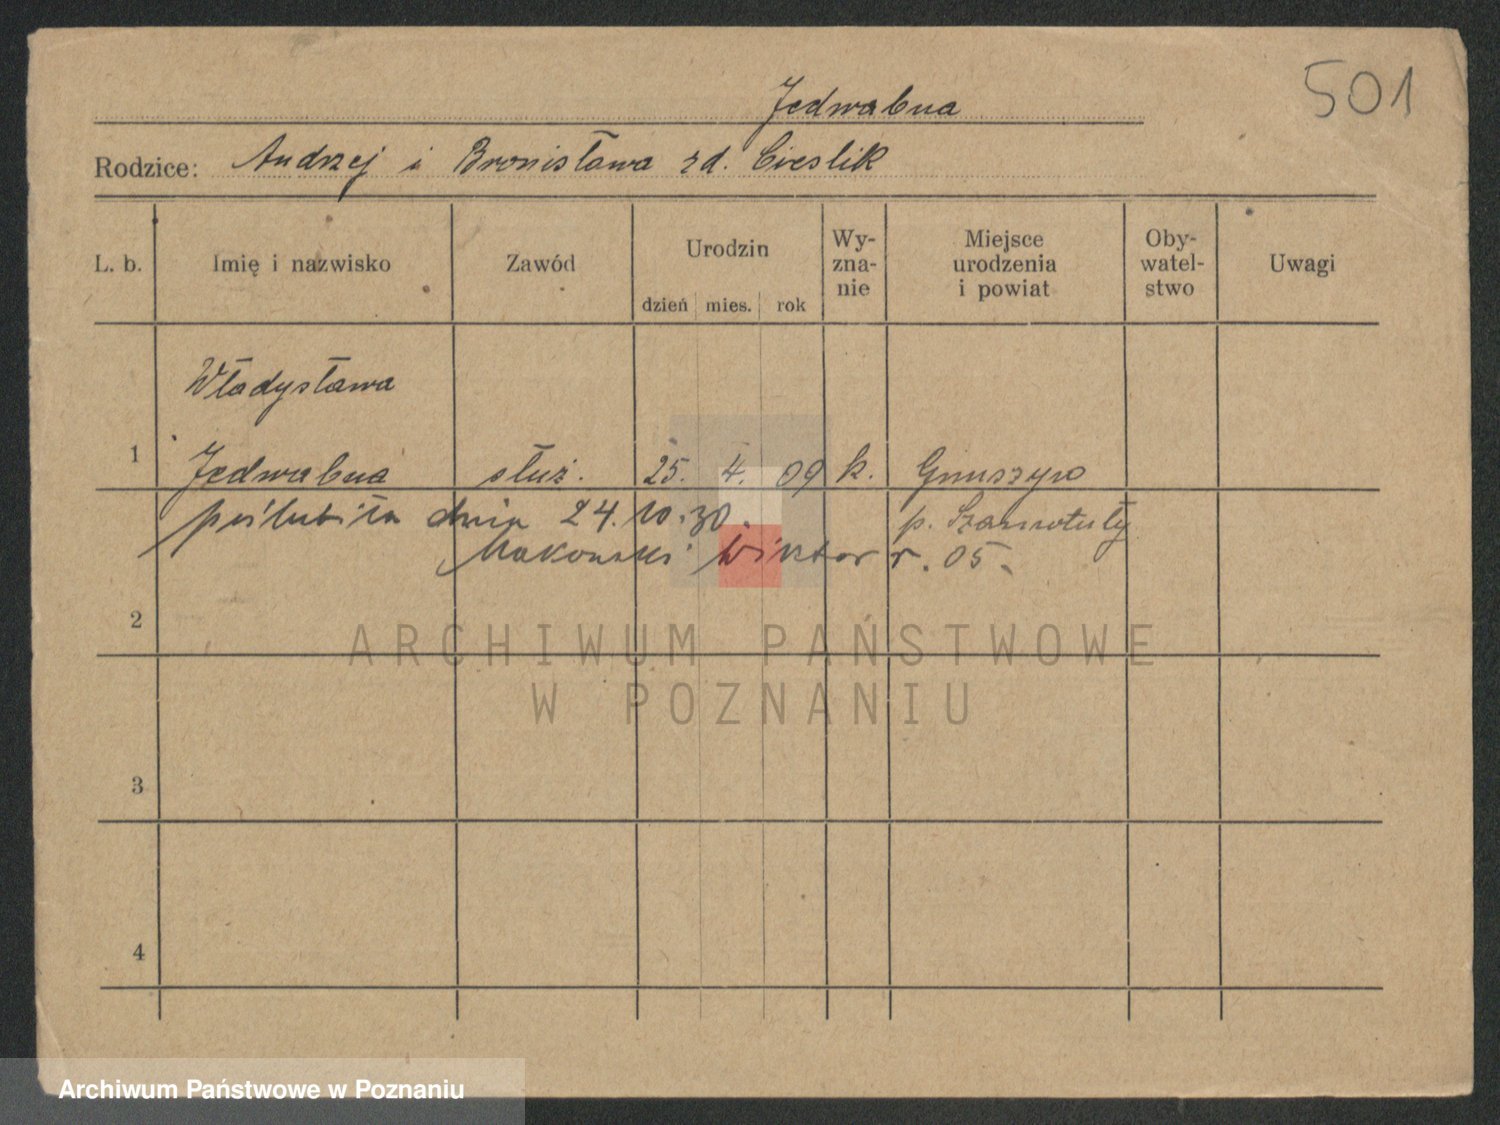 501
Jedwabna
Rodzice: Andrzej i Bronisława zd. Cieslik
L. b. Imię i nazwisko Zawód Urodzin dzień mies. rok Wy-zna-nie Miejsce urodzenia i powiat Oby-watel-stwo Uwagi
Władysława
1 Jedwabna służ. 25. 4. 09 k. Gnuszyn
poślubiła dnia 24. 10. 30. p. Szamotuły
Makowski Wiktor r. 05.
2
ARCHIWUM PAŃSTWOWE
W POZNANIU
3
4
Archiwum Państwowe w Poznaniu